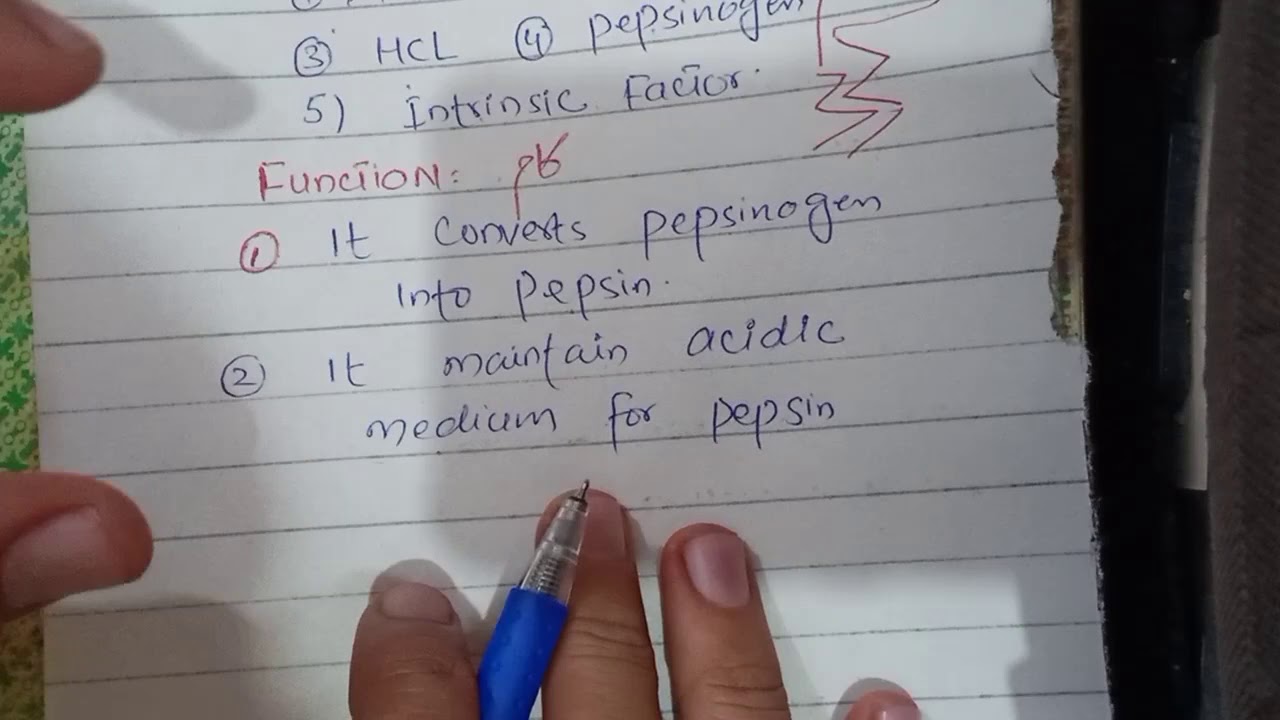 ③ HCL ④ pepsinogen
5) Intrinsic Factor.
Function:
① It Converts pepsinogen
Into Pepsin.
② It maintain acidic
medium for pepsin